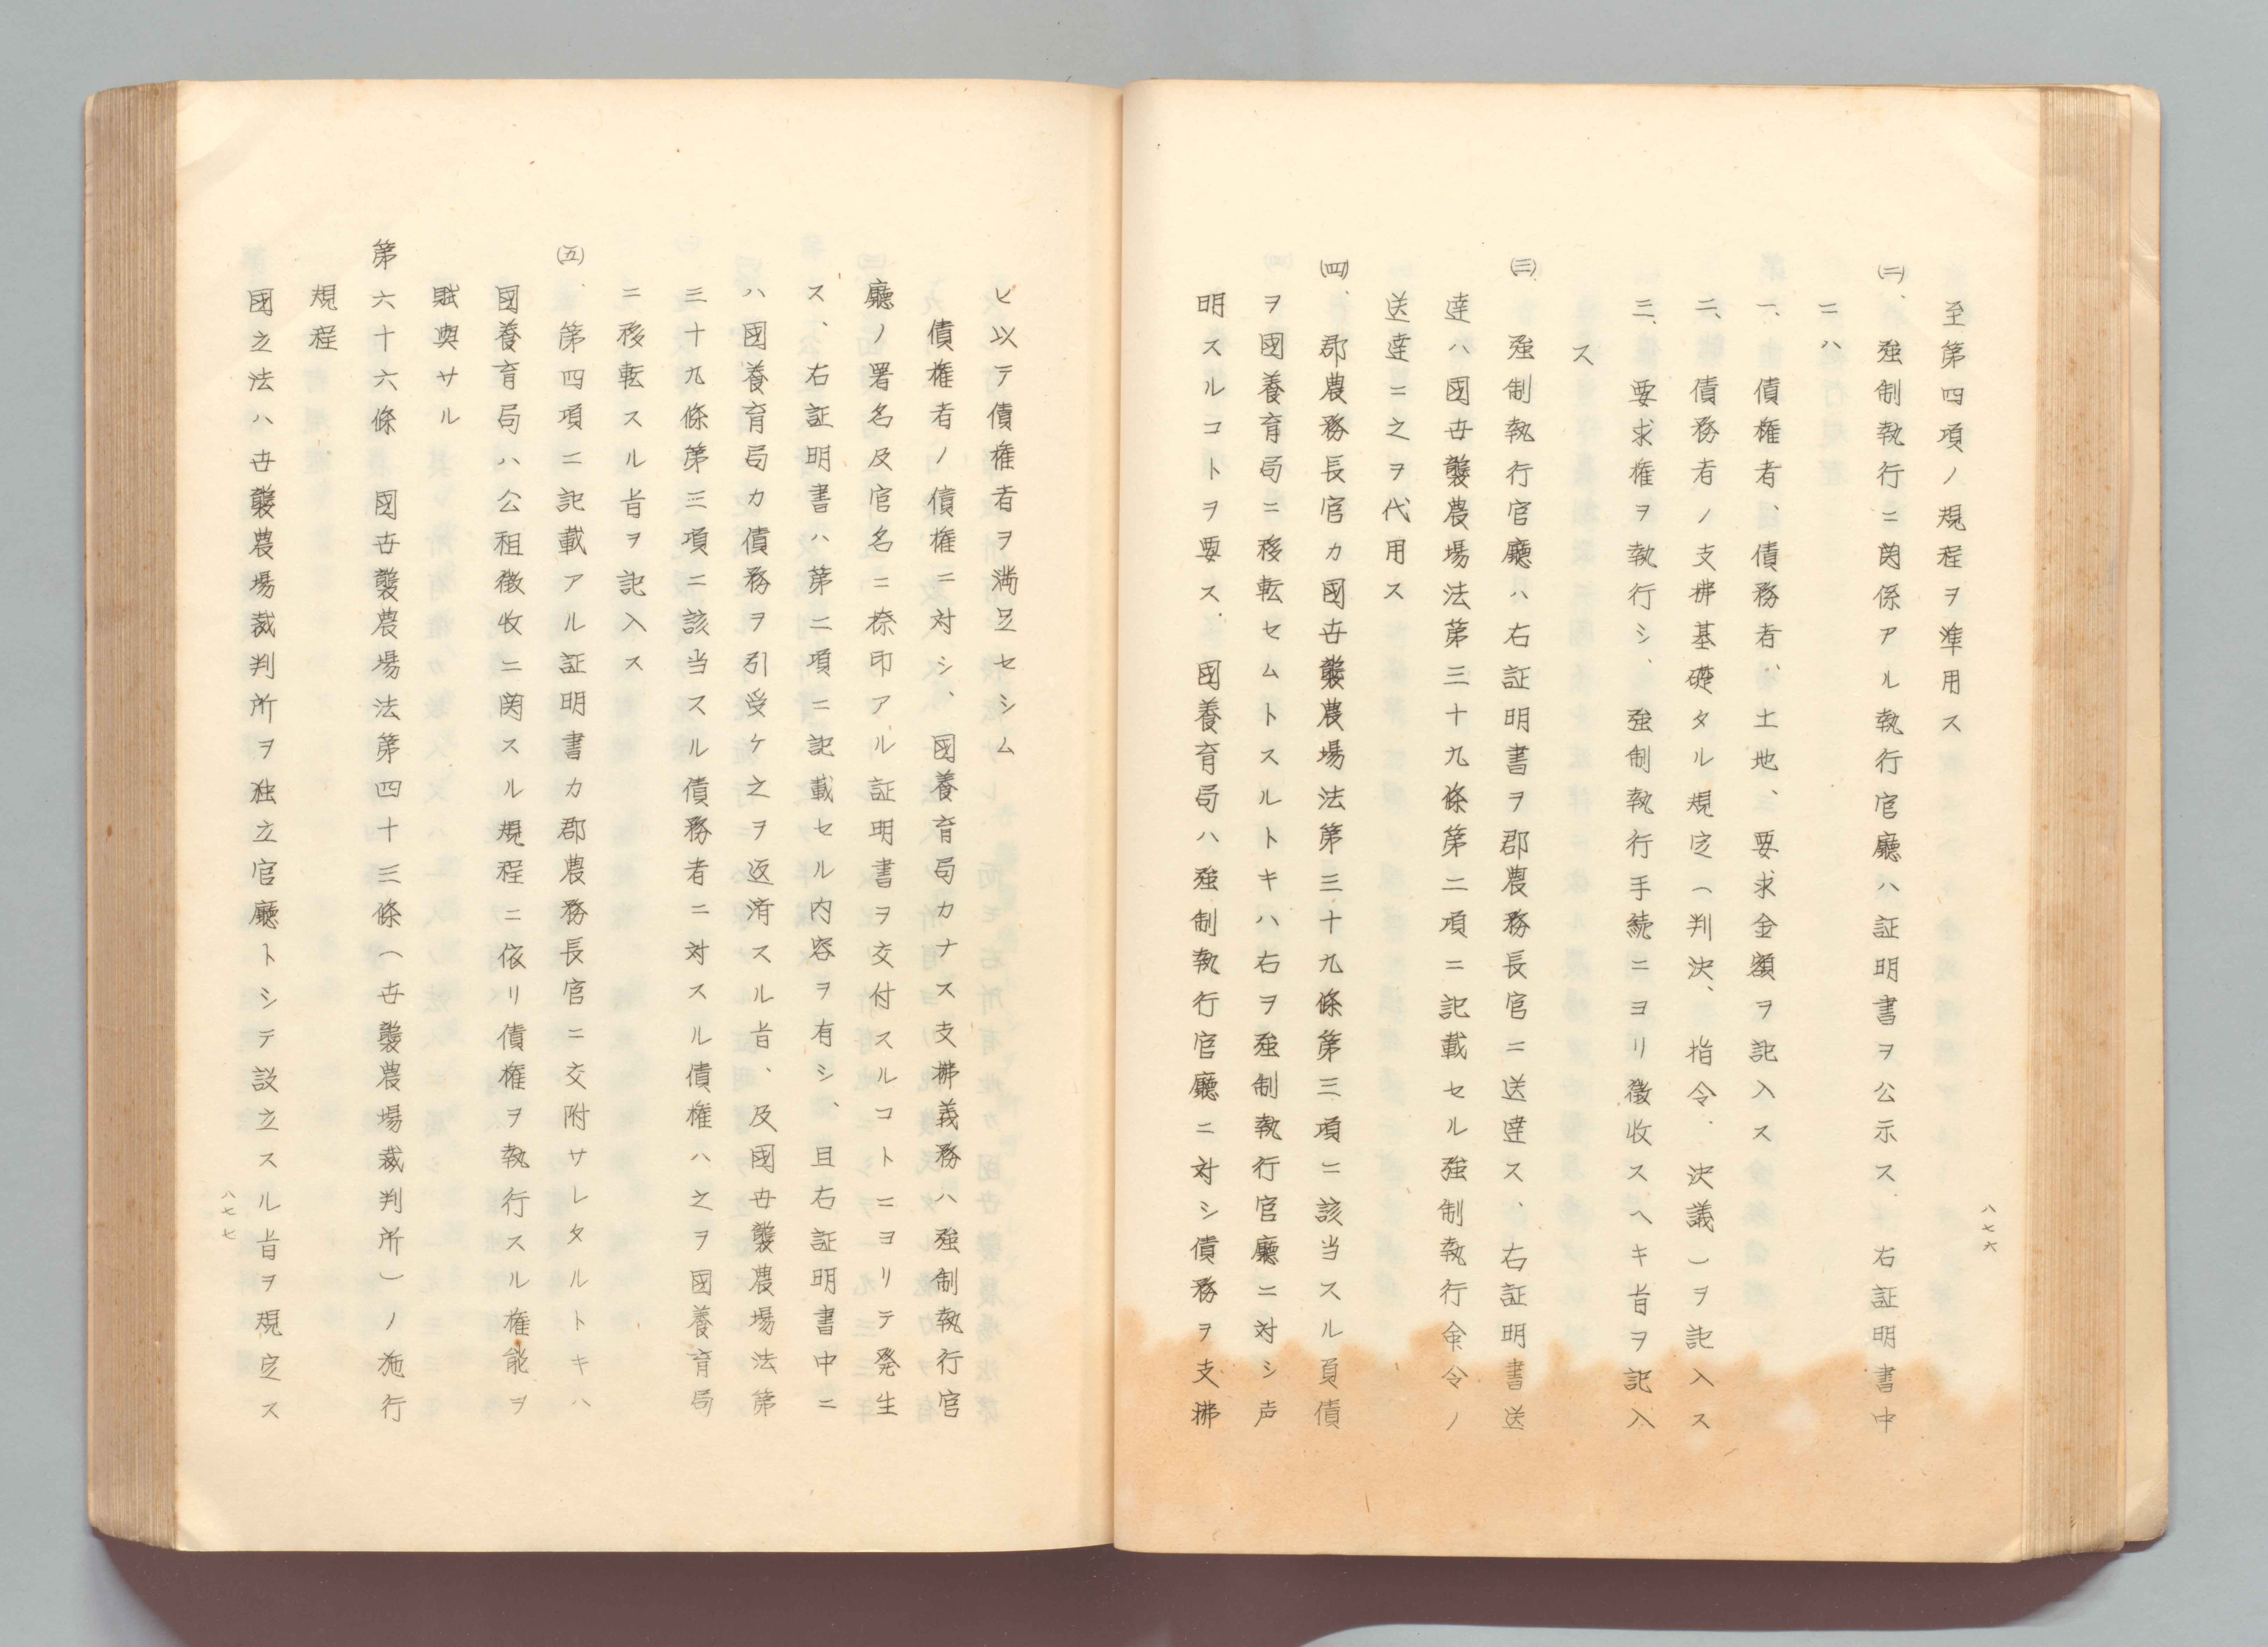 至第四項ノ規程ヲ準用ス
(二)、強制執行ニ関係アル執行官廳ハ証明書ヲ公示ス 右証明書中
ニハ
一、債権者、債務者、土地、要求金額ヲ記入ス
二、債務者ノ支拂基礎タル規定(判決、指令、決議)ヲ記入ス
三、要求権ヲ執行シ、強制執行手続ニヨリ徴收スヘキ旨ヲ記入
ス
(三) 強制執行官廳ハ右証明書ヲ郡農務長官ニ送達ス、右証明書送
達ハ國世襲農場法第三十九條第二項ニ記載セル強制執行命令ノ
送達ニ之ヲ代用ス
(四)、郡農務長官カ國世襲農場法第三十九條第三項ニ該当スル負債
ヲ國養育局ニ移転セムトスルトキハ右ヲ強制執行官廳ニ対シ声
明スルコトヲ要ス、國養育局ハ強制執行官廳ニ対シ債務ヲ支拂
八七六
ヒ以テ債権者ヲ満足セシム
債権者ノ債権ニ対シ、國養育局カナス支拂義務ハ強制執行官
廳ノ署名及官名ニ捺印アル証明書ヲ交付スルコトニヨリテ発生
ス、右証明書ハ第二項ニ記載セル内容ヲ有シ、且右証明書中ニ
ハ國養育局カ債務ヲ引受ケ之ヲ返済スル旨、及國世襲農場法第
三十九條第三項ニ該当スル債務者ニ対スル債権ハ之ヲ國養育局
ニ移転スル旨ヲ記入ス
(五)、第四項ニ記載アル証明書カ郡農務長官ニ交附サレタルトキハ
國養育局ハ公租徴收ニ関スル規程ニ依リ債権ヲ執行スル権能ヲ
賦與サル
第六十六條 國世襲農場法第四十三條(世襲農場裁判所)ノ施行
規程
國立法ハ世襲農場裁判所ヲ独立官廳トシテ設立スル旨ヲ規定ス
八七七